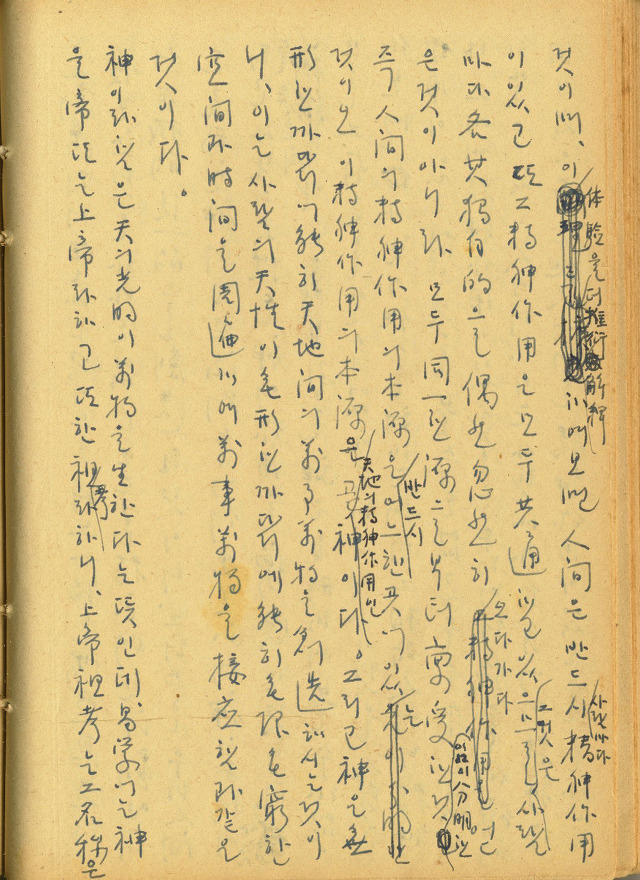 것이며, 이
体验을 더 推衍 解釋
하여보면 人间은 반드시 精神作用
사람마다
이 있고 또 그 精神作用은 모두 共通 있으므로 사람
그것은
마다 各其 獨自的으로 偶然忽然히
오다가다
은 것이 아니라 모두 同一한 源으로부터 禀受한 것
이 分明
즉 人间의 精神作用의 本源은 어느 한 곳에 있
반드시
는
것이오 이 精神作用의 本源은 神이다。그리고 神은 無
天地의 精神作用인
形한 까닭에 能히 天地间의 萬事萬物을 創造하시는 것이
니, 이는 사람의 天性이 無形한 까닭에 能히 無限無窮한
空间과 時间을 周遍하여 萬事萬物을 接應함과 같은
것이다。
神이라 함은 天의 光明이 萬物을 生한다는 뜻인데, 易學에는 神
을 帝 또는 上帝라 하고 또한 祖라 하니, 上帝祖考는 그 名称은
考